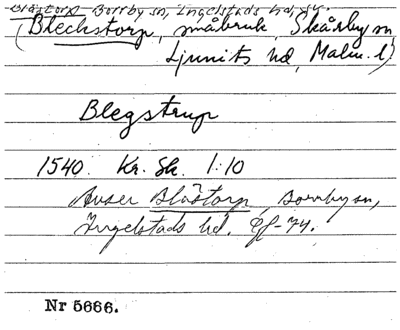 Blåstorp Borrby sn, Ingelstads hd,
(Bleckstorp, småbruk, Skårby sn,
Ljunits hd, Malm. l)
Blegstrup
1540. Kr. Sk. 1:10
Avser Blåstorp, Borrby sn,
Ingelstads hd. GF-74.
Nr 5666.